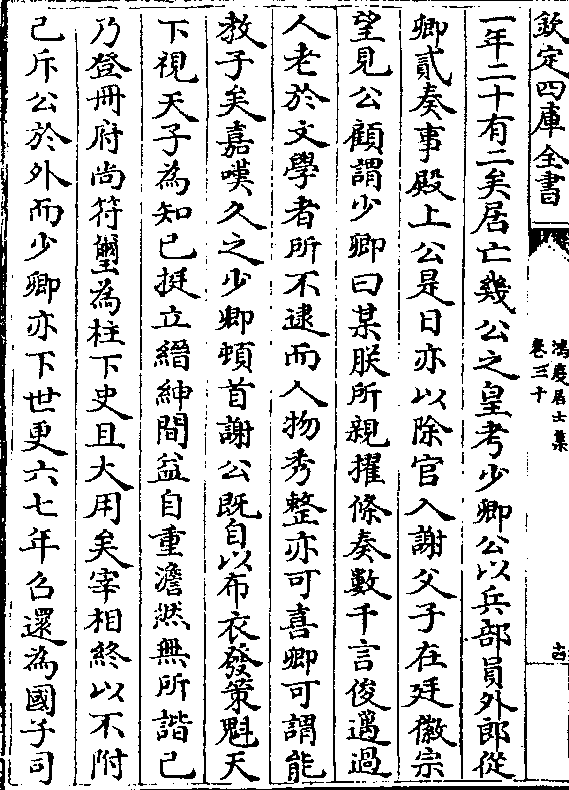 欽定四庫全書
鴻慶居士集
卷三十
古
一年二十有二矣居亡幾公之皇考少卿公以兵部員外郎從
卿貳奏事殿上公是日亦以除官入謝父子在廷徽宗
望見公顧謂少卿曰某朕所親擢條奏數千言俊邁過
人老於文學者所不逮而人物秀整亦可喜卿可謂能
教子矣嘉嘆久之少卿頓首謝公既自以布衣發策魁天
下視天子為知已挺立縉紳間益自重澹然無所諧已
乃登冊府尚符璽為柱下史且大用矣宰相終以不附
己斥公於外而少卿亦下世更六七年召還為國子司